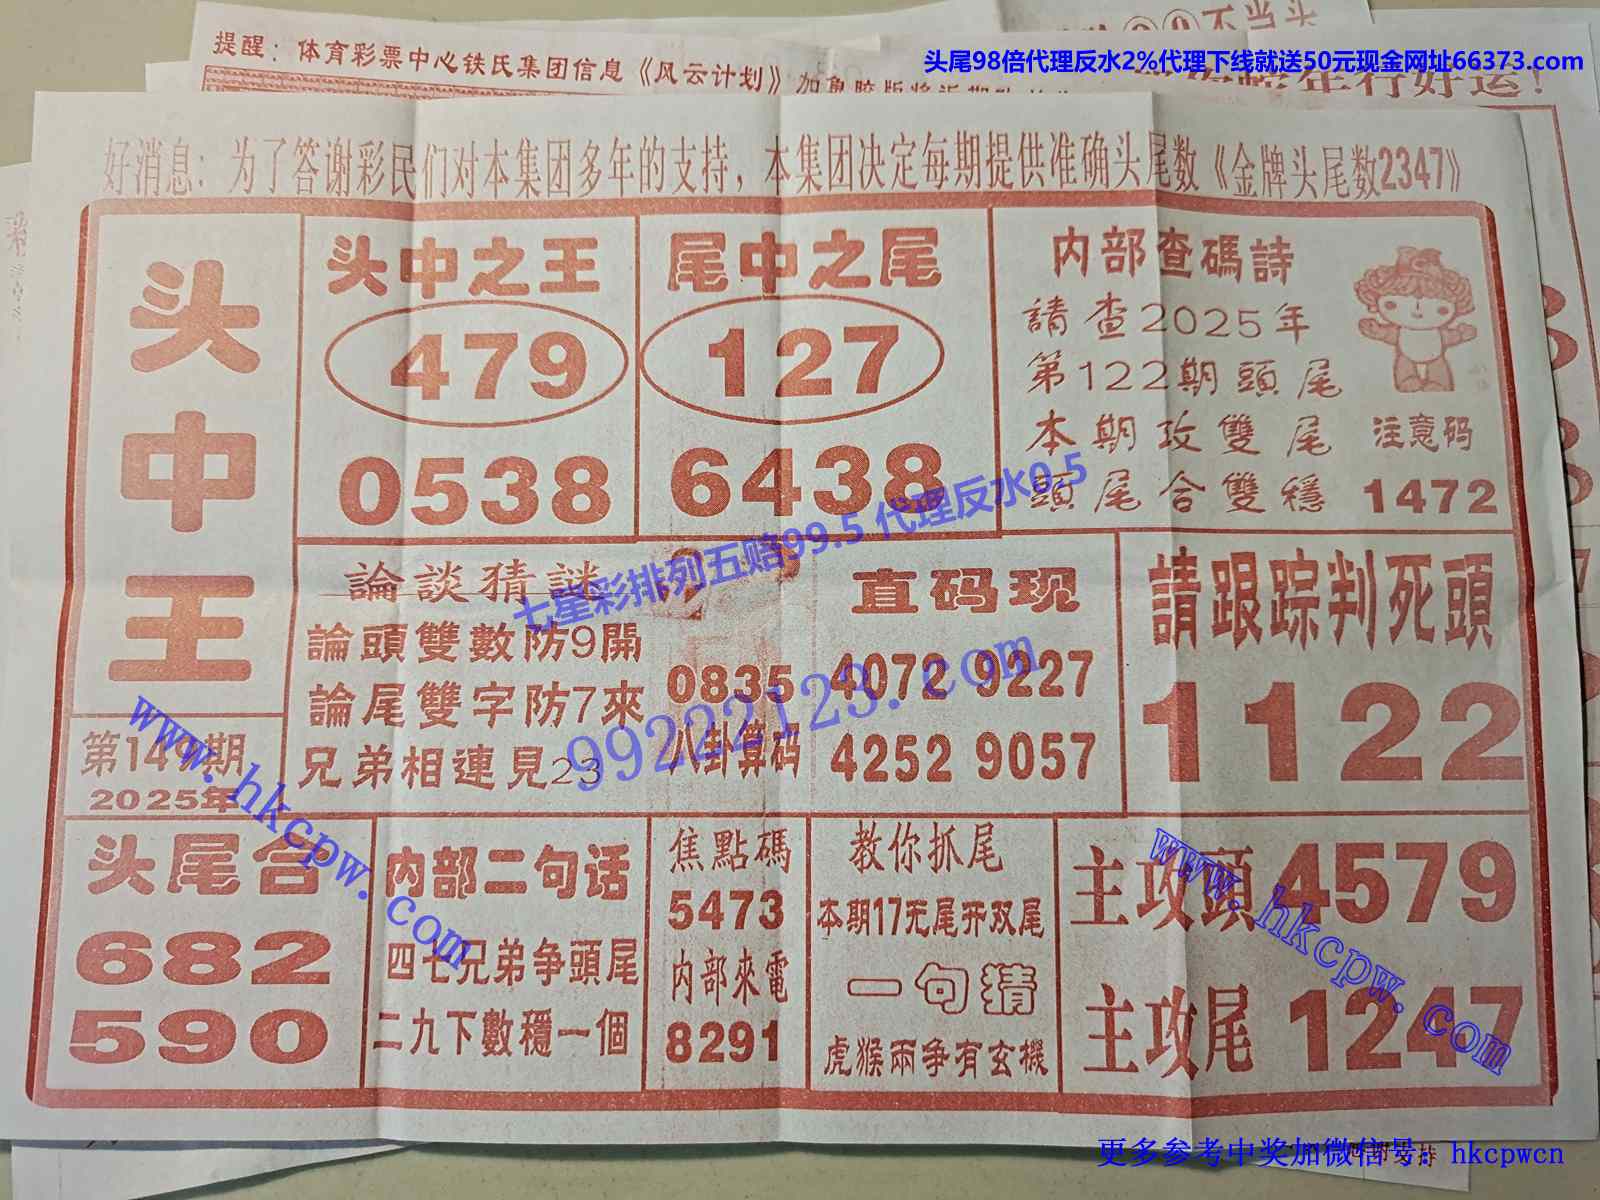 不当头
提醒：体育彩票中心铁氏集团信息《风云计划》
头尾98倍代理反水2%代理下线就送50元现金网址66373.com
年行好运！
好消息：为了答谢彩民们对本集团多年的支持，本集团决定每期提供准确头尾数《金牌头尾数2347》
头中王
第149期
2025年
头中之王
479
0538
尾中之尾
127
6438
内部查碼詩
請查2025年
第122期頭尾
本期攻雙尾
頭尾合雙穩
注意码
1472
論談猜謎
論頭雙數防9開
論尾雙字防7來
兄弟相連見23
0835
八卦算码
直码现
4072 9227
4252 9057
請跟踪判死頭
1122
七星彩排列五赔99.5 代理反水0.5
99222123.com
www.hkcpw.com
头尾合
682
590
内部二句话
四七兄弟争頭尾
二九下數穩一個
焦點碼
5473
内部來電
8291
教你抓尾
本期17无尾开双尾
一句猜
虎猴兩争有玄機
主攻頭4579
主攻尾1247
www.hkcpw.com
更多参考中奖加微信号：hkcpwcn